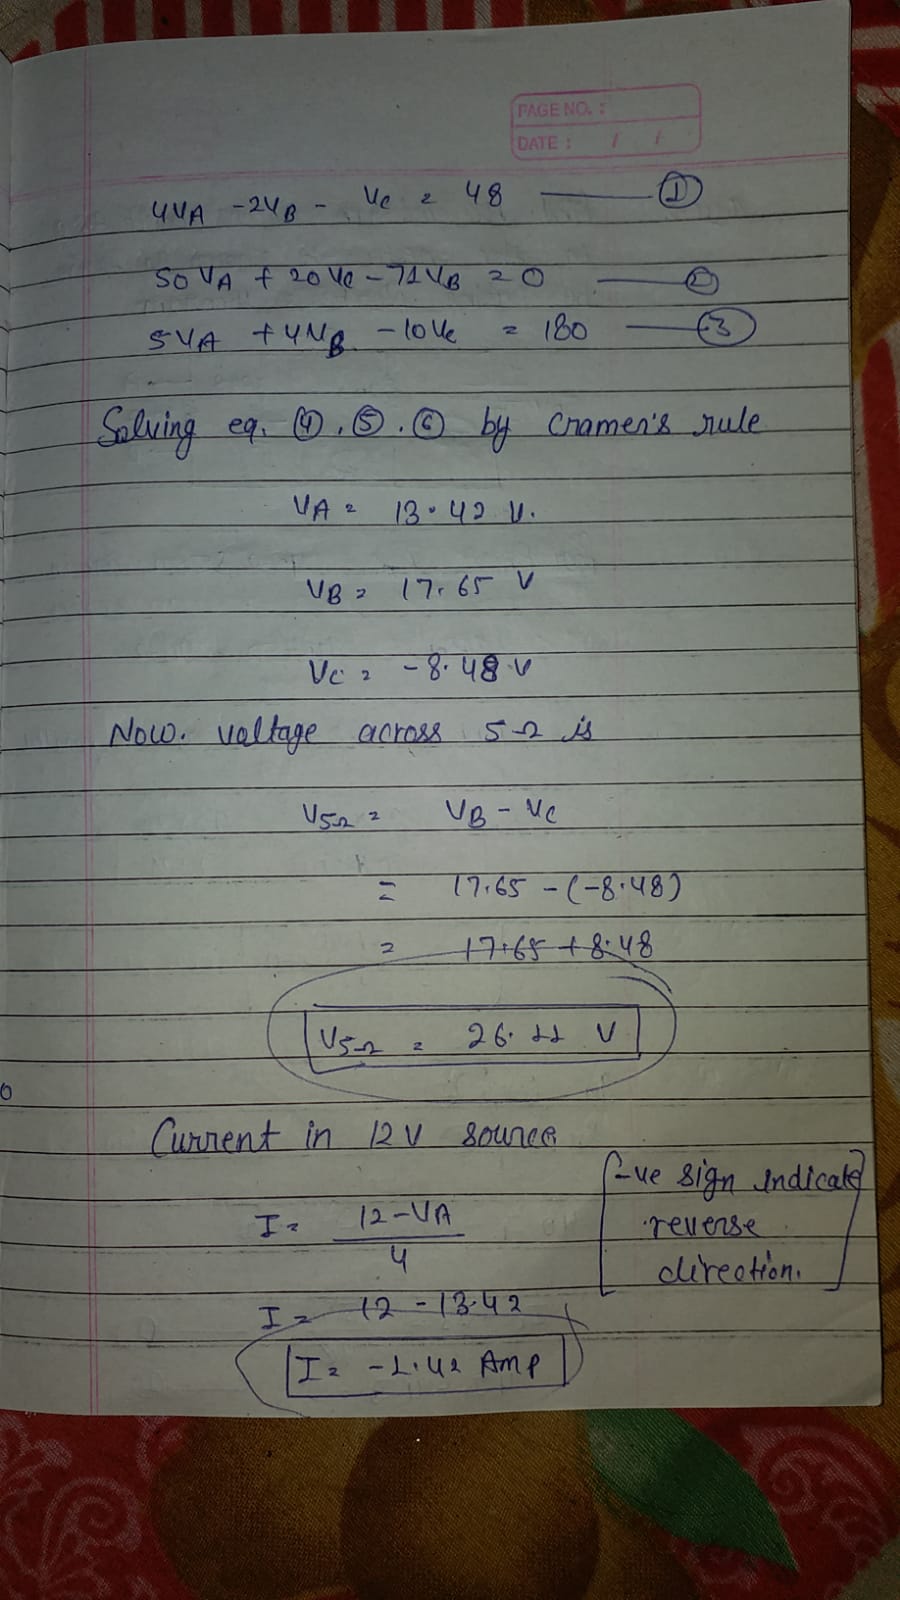 PAGE NO. :
DATE : / /
4VA - 2VB - VC = 48 ——— ①
50VA + 20VC - 71VB = 0 ——— ②
5VA + 4VB - 10VC = 180 ——— ③
Solving eq. ④, ⑤, ⑥ by Cramer's rule
VA = 13.42 V.
VB = 17.65 V
VC = -8.48 V
Now. voltage across 5Ω is
V5Ω = VB - VC
= 17.65 - (-8.48)
= 17.65 + 8.48
V5Ω = 26.11 V
Current in 12V source
I = (12 - VA) / 4
[-ve sign indicate
reverse
direction.]
I = 12 - 13.42
I = -1.42 Amp